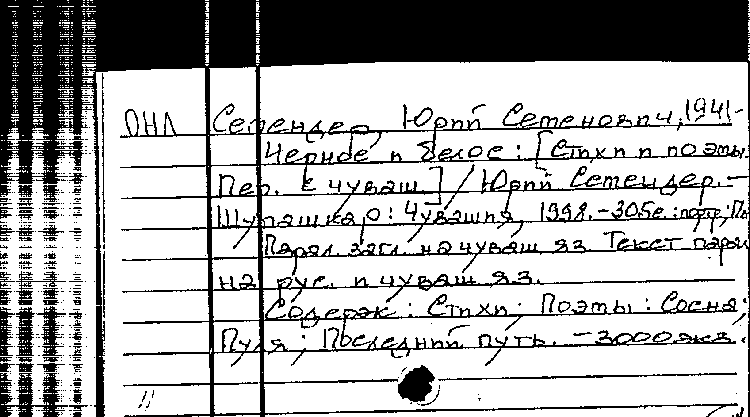 ОНЛ Семендер, Юрий Семенович, 1941-
Черное и белое: [Стихи и поэмы.
Пер. с чуваш.] / Юрий Семендер. –
Шупашкар: Чувашия, 1998. – 305с.: портр;
Парал. загл. на чуваш яз. Текст парал
на рус. и чуваш яз.
Содерж: Стихи; Поэмы: Сосна,
Пуля; Последний путь. – 3000экз.
11